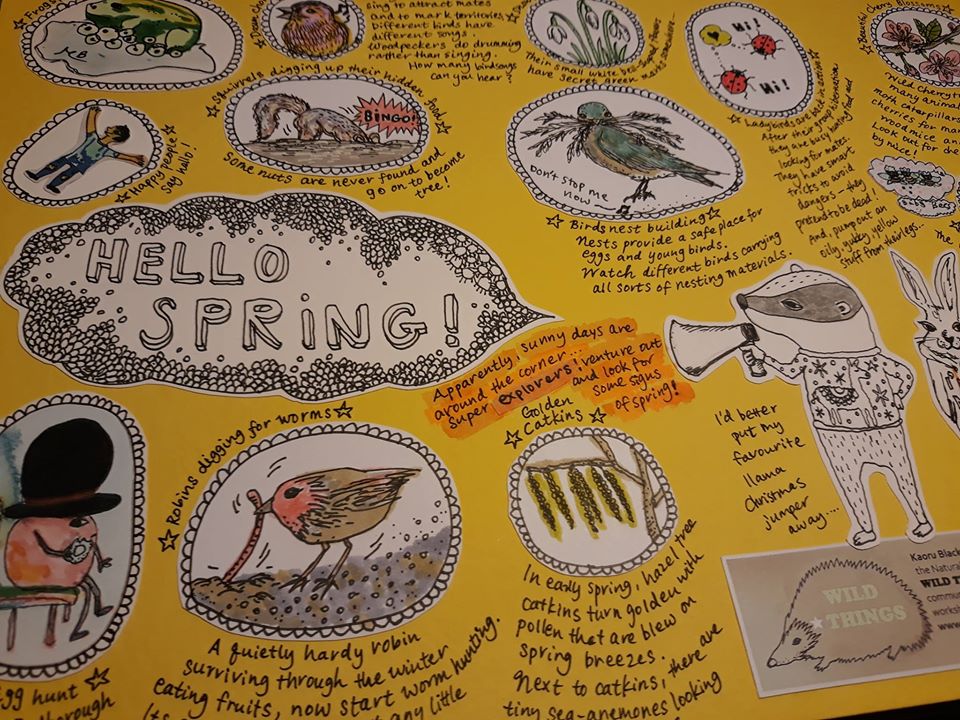 Frogs
JCB
sing to attract mates
and to mark territories.
Different birds have
different songs.
Woodpeckers do drumming
rather than singing.
How many birdsongs
can you hear?
Their small white
have secret green
Hi!
Hi!
Beautiful Cherry Blossoms
Wild Cherry
many animals
moth caterpillars
cherries for
woodmice and
Look out for
by nice!
Ladybirds are back in action
After their group hibernation
they are busy hunting
looking for mates. food and
They have smart
tricks to avoid
dangers - they
pretend to be dead!
And, pump out an
oily, yukky, yellow
stuff from their legs...
Happy people
say hello!
Squirrels digging up their hidden food
BINGO!
Some nuts are never found and
go on to become
tree!
Don't stop me
now
Birds nest building
Nests provide a safe place for
eggs and young birds.
Watch different birds carrying
all sorts of nesting materials.
HELLO
SPRiNG!
Apparently, sunny days are
around the corner...
super explorers! venture out
and look for
some signs
of spring!
I'd better
put my
favourite
llama
christmas
jumper
away...
Robins digging for worms
A quietly hardy robin
surviving through the winter
eating fruits, now start worm hunting.
any little
Golden
Catkins
In early spring, hazel tree
catkins turn golden with
pollen that are blew on
spring breezes.
Next to catkins, there are
tiny sea-anemones looking
egg hunt
WILD
THINGS
Kaoru Black
the Natural
WILD T
commu
worksh
www.